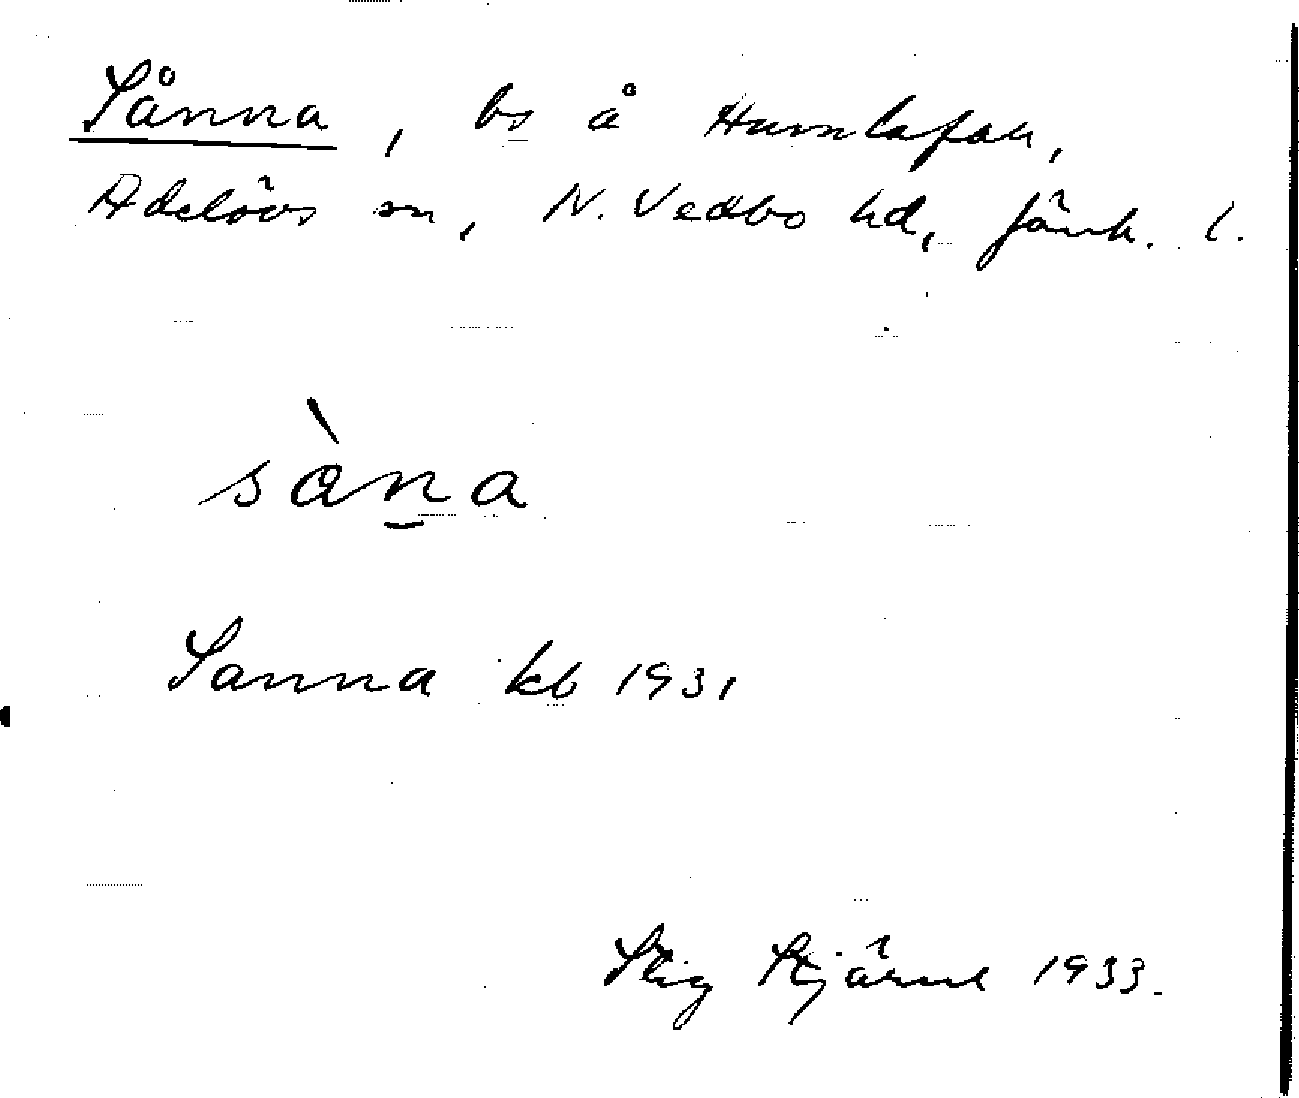 Sånna, bs å Humlafall,
Adelövs sn, N. Vedbo hd, Jönk. l.
sàn̲a
Sanna kb 1931
Stig Stjärne 1933.